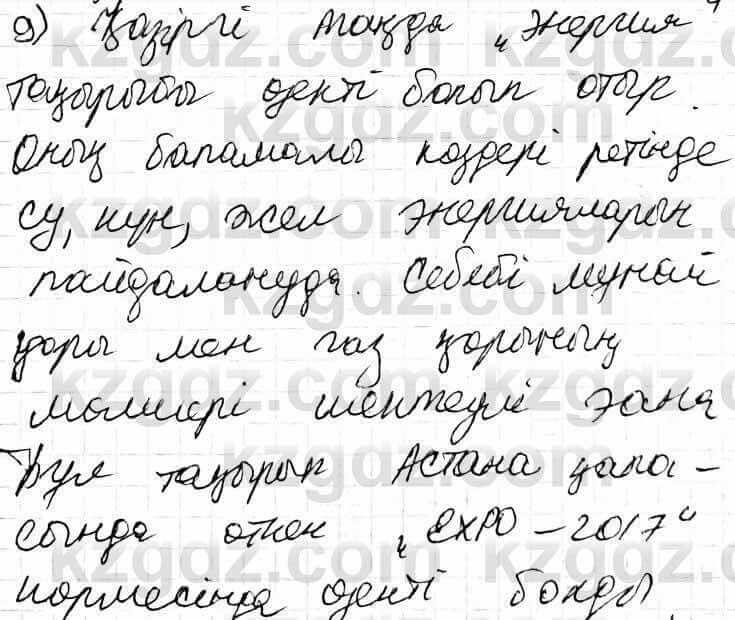 9) Қазіргі таңда „Энергия"
тақырыбы өзекті болып отыр.
Оның баламалы көздері ретінде
су, күн, жел энергияларын
пайдалануда. Себебі мұнай
қоры мен газ қорының
мөлшері шектеулі және
Бұл тақырып Астана қала-
сында өткен „EXPO-2017"
көрмесінде өзекті болды.